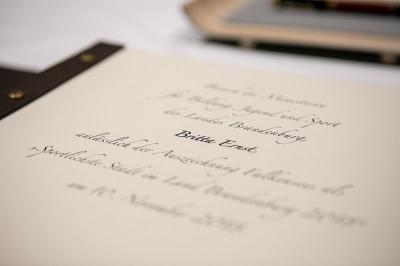 Besuch der Ministerin
für Bildung, Jugend und Sport
des Landes Brandenburg,
Britta Ernst
anlässlich der Auszeichnung Falkensees als
»Sportlichste Stadt im Land Brandenburg 2018«
am 10. November 2018